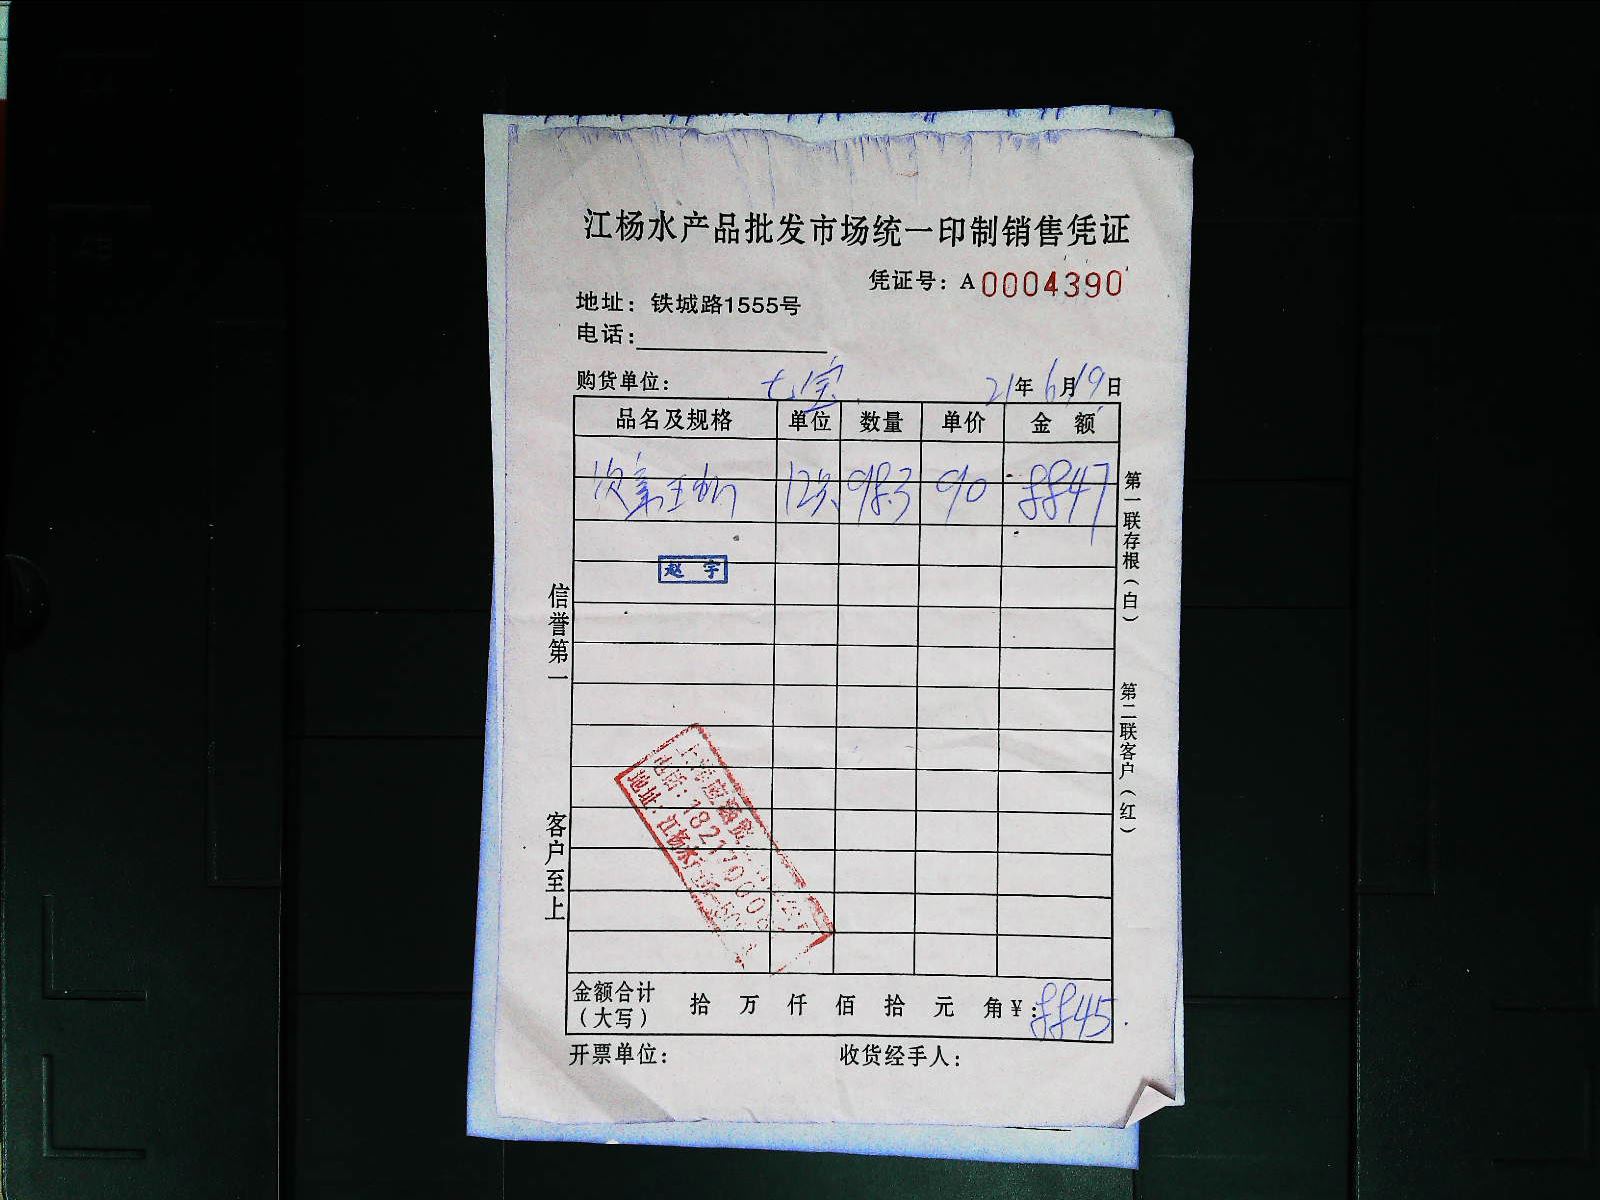 江杨水产品批发市场统一印制销售凭证
凭证号：A0004390
地址：铁城路1555号
电话：
购货单位：七宝 21年6月19日
品名及规格 单位 数量 单价 金额
12只 98.3 90 8847
赵宇
信誉第一
客户至上
第一联存根（白）
第二联客户（红）
电话：1821700
地址：江杨水
金额合计（大写） 拾 万 仟 佰 拾 元 角 ¥：8845.
开票单位： 收货经手人：